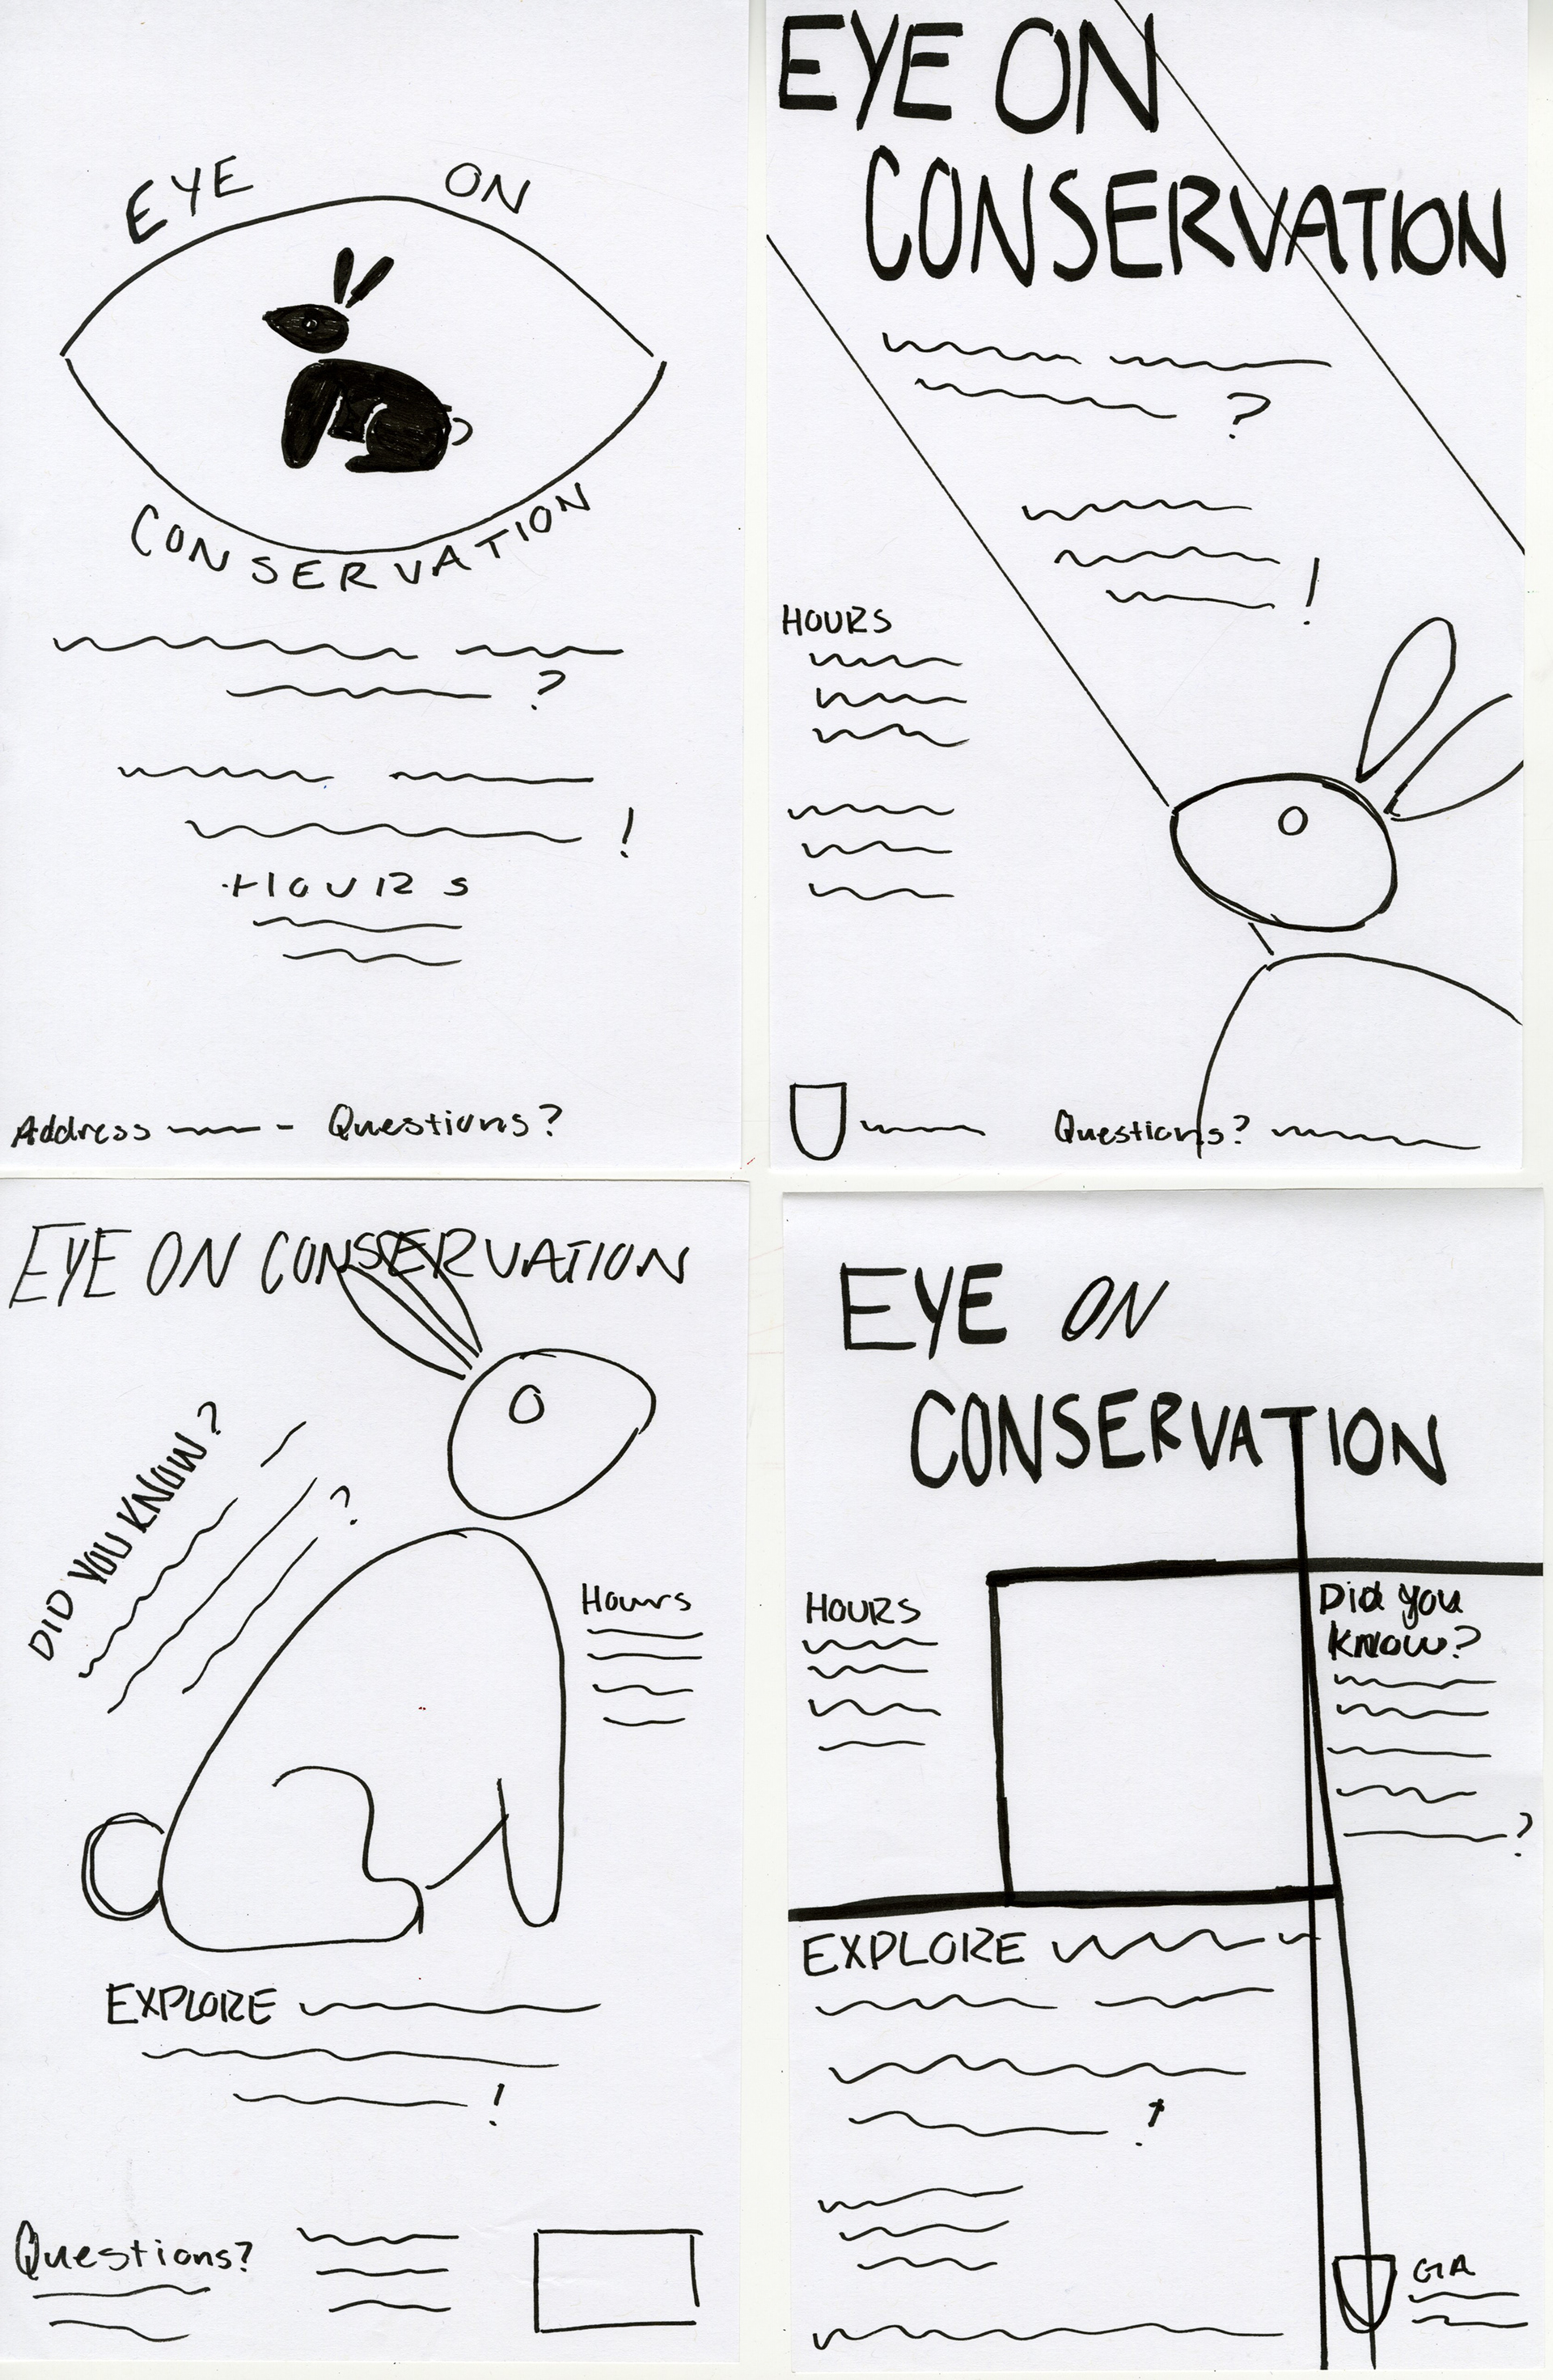 EYE ON
CONSERVATION
?
!
HOURS
Address Questions?
EYE ON
CONSERVATION
?
!
HOURS
Questions?
EYE ON CONSERVATION
DID YOU KNOW?
?
Hours
EXPLORE
!
Questions?
EYE ON
CONSERVATION
HOURS
Did you
know?
?
EXPLORE
!
GA